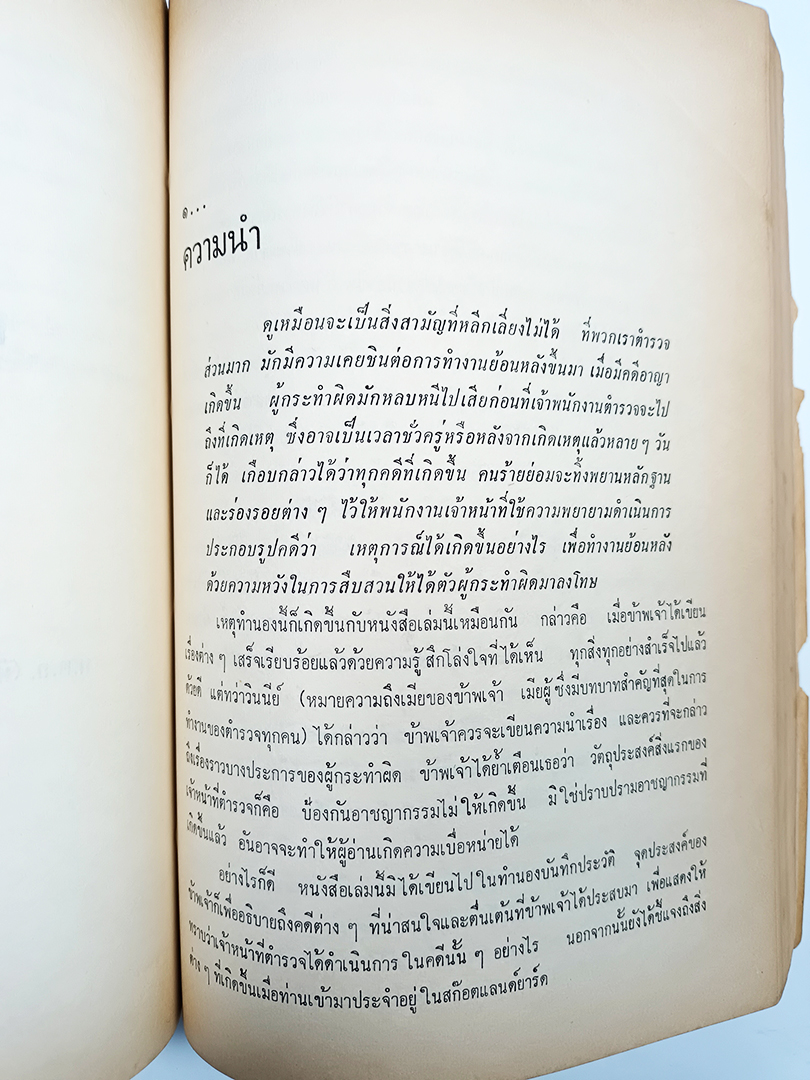 ๑...
ความนำ
ดูเหมือนจะเป็นสิ่งสามัญที่หลีกเลี่ยงไม่ได้ ที่พวกเราตำรวจ
ส่วนมาก มักมีความเคยชินต่อการทำงานย้อนหลังขึ้นมา เมื่อมีคดีอาญา
เกิดขึ้น ผู้กระทำผิดมักหลบหนีไปเสียก่อนที่เจ้าพนักงานตำรวจจะไป
ถึงที่เกิดเหตุ ซึ่งอาจเป็นเวลาชั่วครู่หรือหลังจากเกิดเหตุแล้วหลาย ๆ วัน
ก็ได้ เกือบกล่าวได้ว่าทุกคดีที่เกิดขึ้น คนร้ายย่อมจะทิ้งพยานหลักฐาน
และร่องรอยต่าง ๆ ไว้ให้พนักงานเจ้าหน้าที่ใช้ความพยายามดำเนินการ
ประกอบรูปคดีว่า เหตุการณ์ได้เกิดขึ้นอย่างไร เพื่อทำงานย้อนหลัง
ด้วยความหวังในการสืบสวนให้ได้ตัวผู้กระทำผิดมาลงโทษ
เหตุทำนองนี้ก็เกิดขึ้นกับหนังสือเล่มนี้เหมือนกัน กล่าวคือ เมื่อข้าพเจ้าได้เขียน
เรื่องต่าง ๆ เสร็จเรียบร้อยแล้วด้วยความรู้สึกโล่งใจที่ได้เห็น ทุกสิ่งทุกอย่างสำเร็จไปแล้ว
ด้วยดี แต่ทว่าวินนีย์ (หมายความถึงเมียของข้าพเจ้า เมียผู้ซึ่งมีบทบาทสำคัญที่สุดในการ
ทำงานของตำรวจทุกคน) ได้กล่าวว่า ข้าพเจ้าควรจะเขียนความนำเรื่อง และควรที่จะกล่าว
ถึงเรื่องราวบางประการของผู้กระทำผิด ข้าพเจ้าได้ย้ำเตือนเธอว่า วัตถุประสงค์สิ่งแรกของ
เจ้าหน้าที่ตำรวจก็คือ ป้องกันอาชญากรรมไม่ให้เกิดขึ้น มิใช่ปราบปรามอาชญากรรมที่
เกิดขึ้นแล้ว อันอาจจะทำให้ผู้อ่านเกิดความเบื่อหน่ายได้
อย่างไรก็ดี หนังสือเล่มนี้มิได้เขียนไปในทำนองบันทึกประวัติ จุดประสงค์ของ
ข้าพเจ้าก็เพื่ออธิบายถึงคดีต่าง ๆ ที่น่าสนใจและตื่นเต้นที่ข้าพเจ้าได้ประสบมา เพื่อแสดงให้
ทราบว่าเจ้าหน้าที่ตำรวจได้ดำเนินการในคดีนั้น ๆ อย่างไร นอกจากนั้นยังได้ชี้แจงถึงสิ่ง
ต่าง ๆ ที่เกิดขึ้นเมื่อท่านเข้ามาประจำอยู่ในสก๊อตแลนด์ยาร์ด